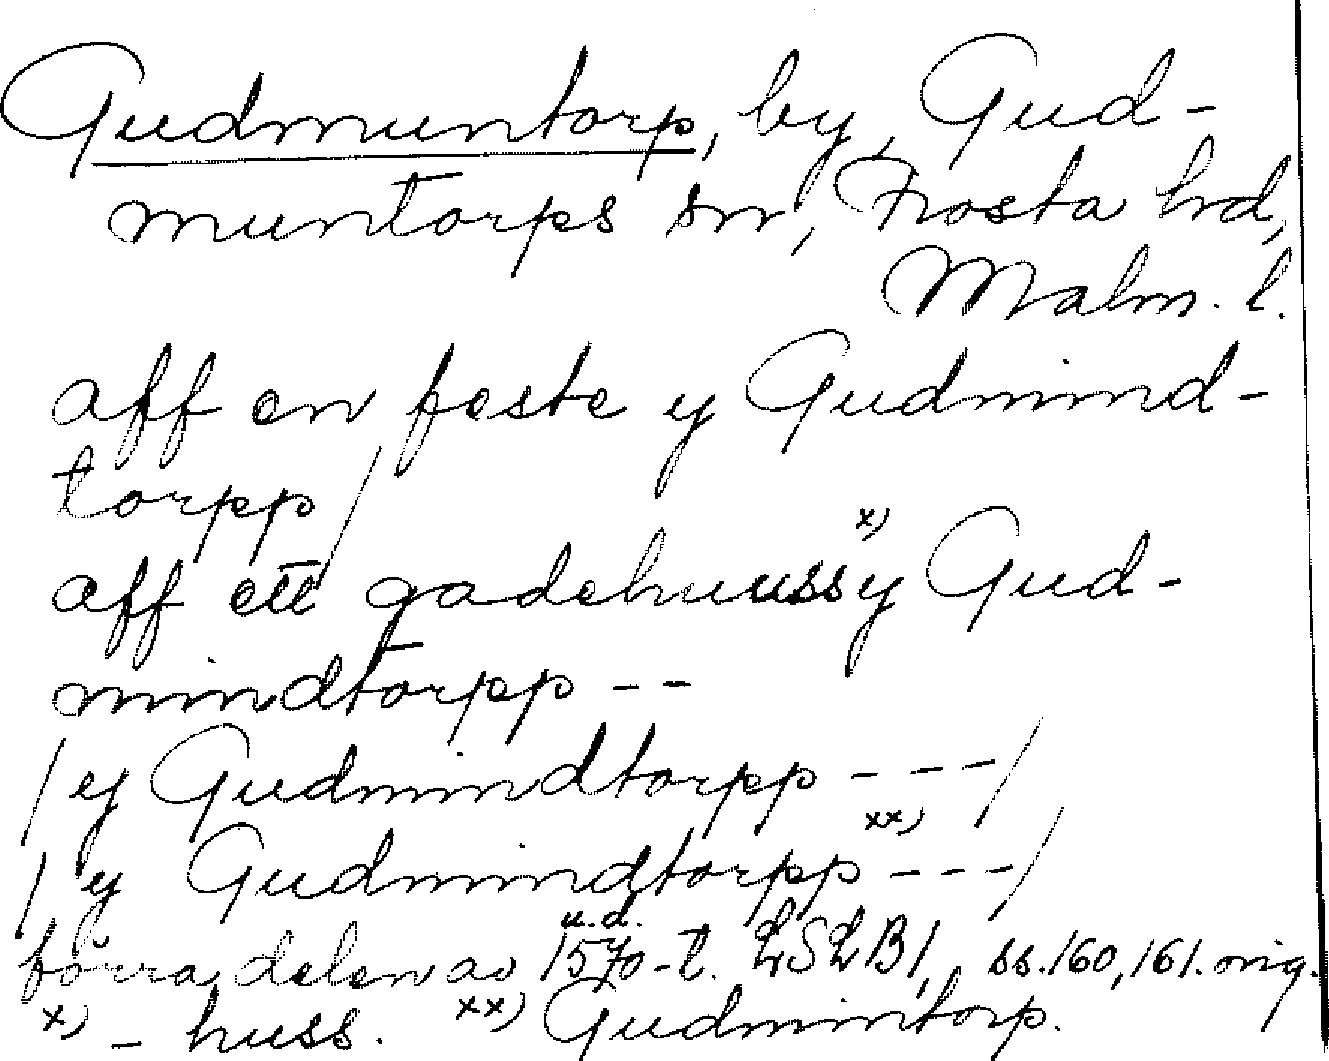 Gudmuntorp, by, Gud-
muntorps sn, Frosta hd,
Malm. l.
aff en feste y Gudmind-
torpp/
aff ett gadehuuss x) y Gud-
mindtorpp --
/ y Gudmindtorpp ---/
/ y Gudmindtorpp xx) ---/
u.d.
förra delen av 1570-t. LSLB1, ss. 160, 161. orig.
x) - huss. xx) Gudmintorp.